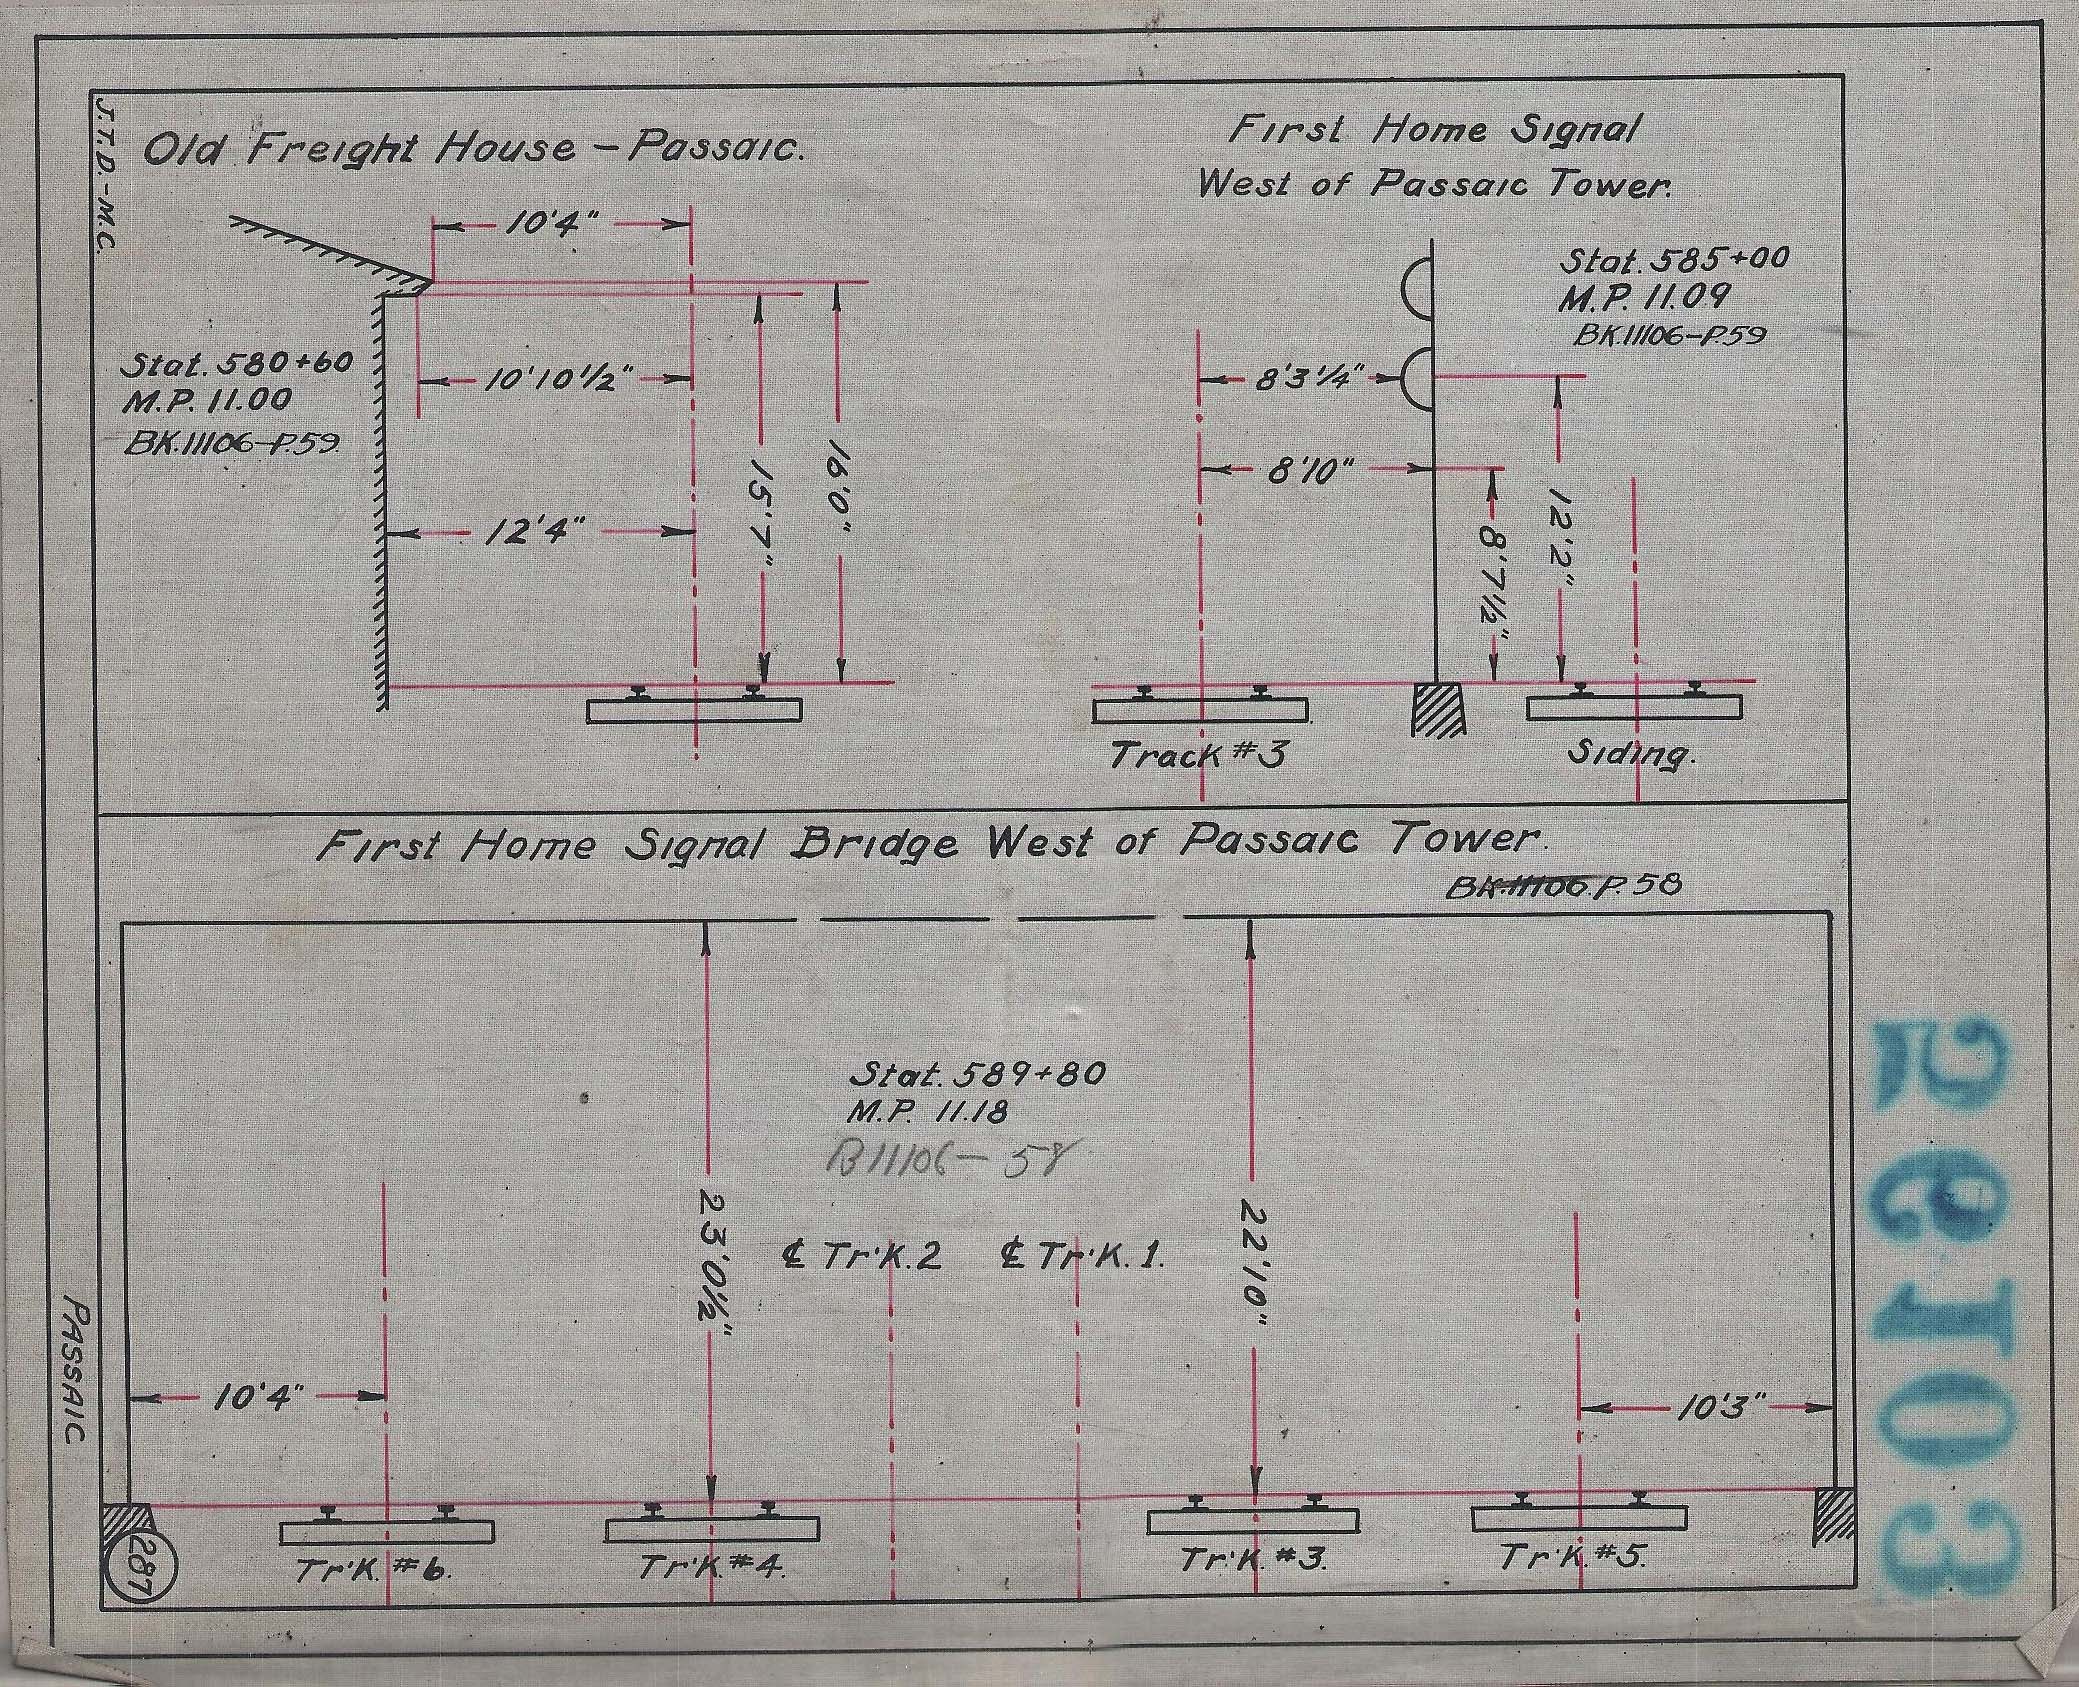 J.T.D.-M.C.
Old Freight House - Passaic.
10'4"
Stat. 580+60
M.P. 11.00
BK.11106-P.59.
10'10 1/2"
12'4"
15'7"
16'0"
First Home Signal
West of Passaic Tower.
Stat. 585+00
M.P. 11.09
BK.11106-P.59
8'3 1/4"
8'10"
8'7 1/2"
12'2"
Track #3
Siding.
First Home Signal Bridge West of Passaic Tower.
BK.11106.P.58
Stat. 589+80
M.P. 11.18
B11106-58
23'0 1/2"
℄ Tr'k. 2
℄ Tr'k. 1.
22'10"
10'4"
10'3"
Tr'k. #6.
Tr'k. #4.
Tr'k. #3.
Tr'k. #5.
287
PASSAIC
59103